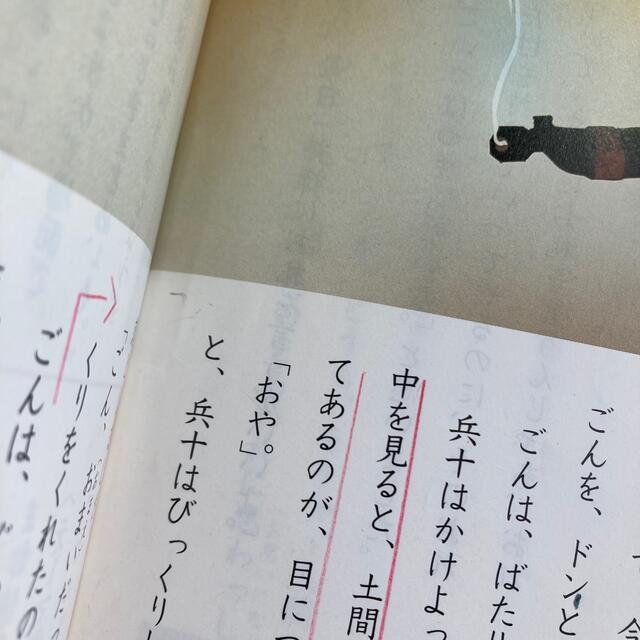 ごんを、ドンと
ごんは、ばた
兵十はかけよっ
中を見ると、土間
てあるのが、目につ
「おや。」
と、兵十はびっくり
「ごん、おまいだ
くりをくれたの
ごんは、